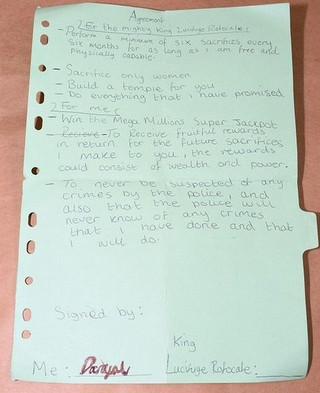 Agreement
For the mighty King Lucifuge Rofocale:
- Perform a minimum of six sacrifices every
six months for as long as I am free and
physically capable.
- Sacrifice only women
- Build a temple for you
- Do everything that I have promised
For me:
- Win the Mega Millions Super Jackpot
- Recieve To Receive fruitful rewards
in return for the future sacrifices
I make to you, the rewards
could consist of wealth and power.
- To never be suspected of any
crimes by the police, and
also that the police will
never know of any crimes
that I have done and that
I will do.
Signed by:
King
Me: Lucifuge Rofocale: